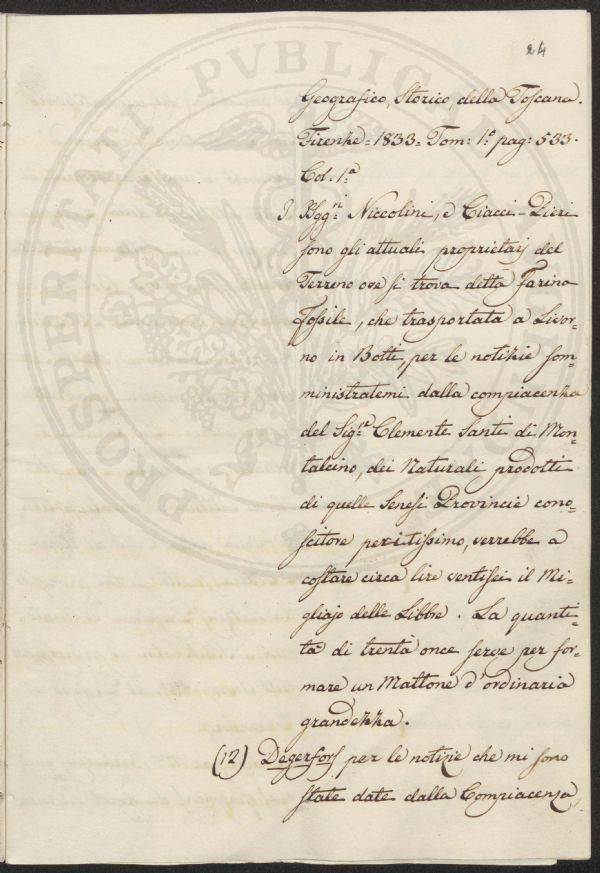 24
Geografico, Storico, della Toscana.
Firenze = 1833 = Tom: 1.º pag: 533.
Col. 1.ª
I Sgg.ri Niccolini, e Ciacci-Pieri
sono gli attuali proprietarj del
Terreno ove si trova detta Farina
Fossile, che trasportata a Livor=
no in Botti, per le notizie som=
ministratemi dalla compiacenza
del Sig.re Clemente Santi di Mon=
talcino, dei Naturali prodotti
di quelle Senesi Provincie cono=
scitore peritissimo, verrebbe a
costare circa lire ventisei il Mi=
gliajo delle Libbre. La quanti=
tà di trenta once serve per for=
mare un Mattone d'ordinaria
grandezza.
(12) Degerfors per le notizie che mi sono
state date dalla Compiacenza
PROSPERITATI PVBLICAE